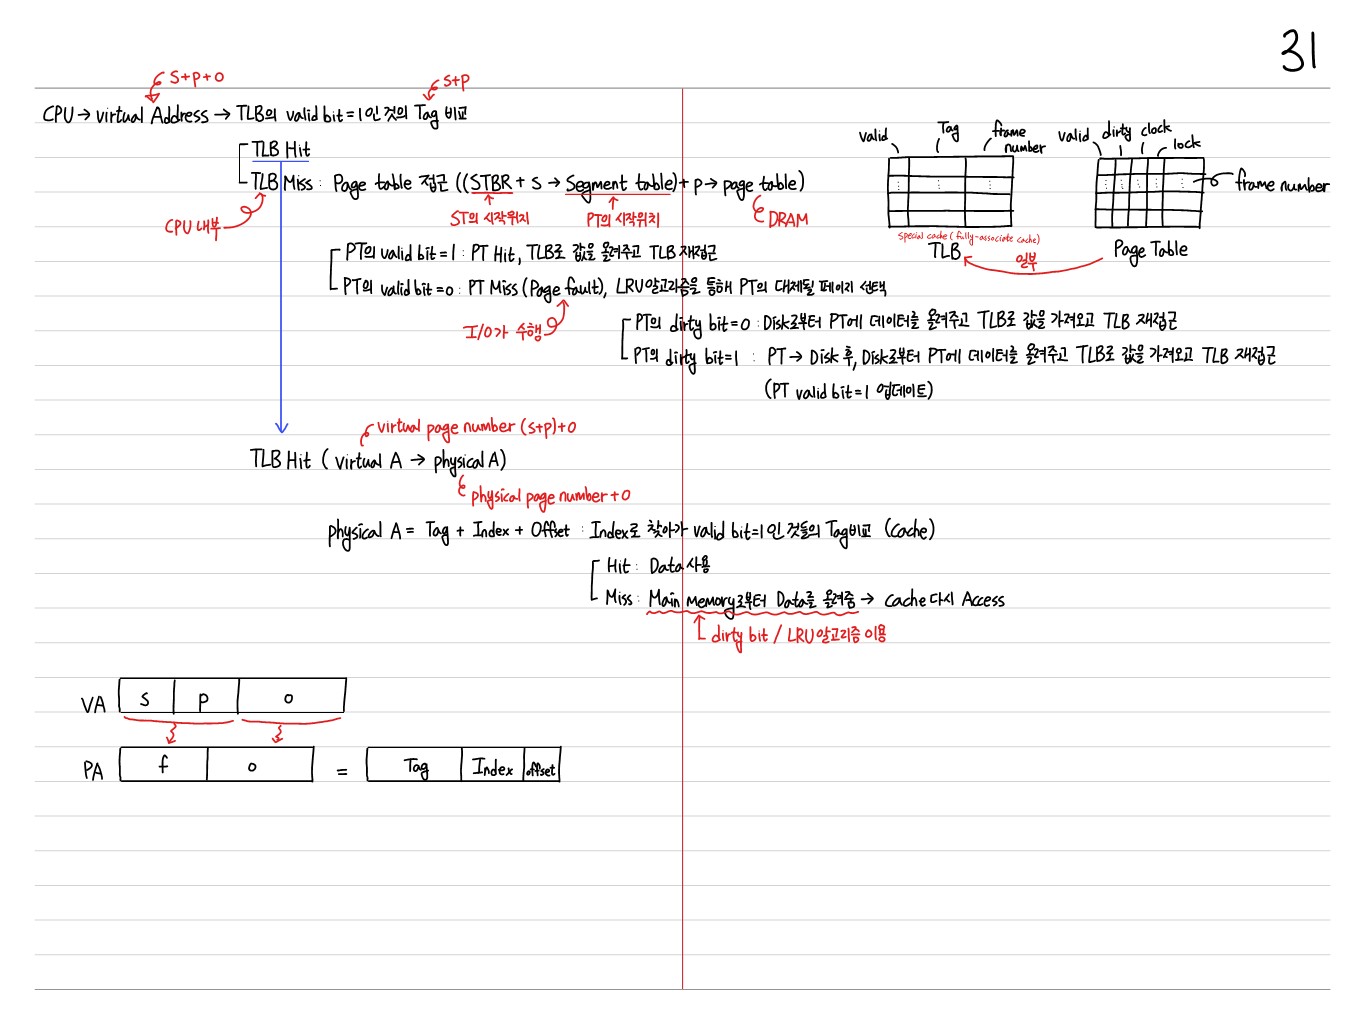 31
S+p+o
s+p
CPU → virtual Address → TLB의 valid bit=1인 것의 Tag 비교
TLB Hit
TLB Miss : Page table 접근 ((STBR + s → Segment table) + p → page table)
CPU 내부
ST의 시작위치
PT의 시작위치
DRAM
valid
Tag
frame number
special cache (fully-associate cache)
TLB
일부
valid dirty clock
lock
frame number
Page Table
PT의 valid bit=1 : PT Hit, TLB로 값을 올려주고 TLB 재접근
PT의 valid bit=0 : PT Miss (Page fault), LRU알고리즘을 통해 PT의 대체될 페이지 선택
I/O가 수행
PT의 dirty bit=0 : Disk로부터 PT에 데이터를 올려주고 TLB로 값을 가져오고 TLB 재접근
PT의 dirty bit=1 : PT → Disk 후, Disk로부터 PT에 데이터를 올려주고 TLB로 값을 가져오고 TLB 재접근
(PT valid bit=1 업데이트)
virtual page number (s+p)+o
TLB Hit ( virtual A → physical A)
physical page number + o
physical A = Tag + Index + Offset : Index로 찾아가 valid bit=1인 것들의 Tag비교 (Cache)
Hit : Data 사용
Miss : Main memory로부터 Data를 올려줌 → cache 다시 Access
dirty bit / LRU알고리즘 이용
VA s p o
PA f o = Tag Index offset